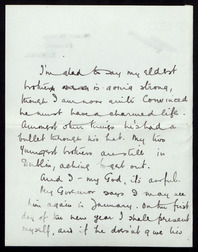 I'm glad to say my eldest
brother is going strong,
though I am now quite convinced
he must have a charmed life.
Amongst other things he's had a
bullet through his hat. My two
youngest brothers are still in
Dublin, aching to get out.
And I - my God, it's awful.
My Governor says I may see
him again in January. On the first
day of the new year I shall present
myself, and if he doesn't give his